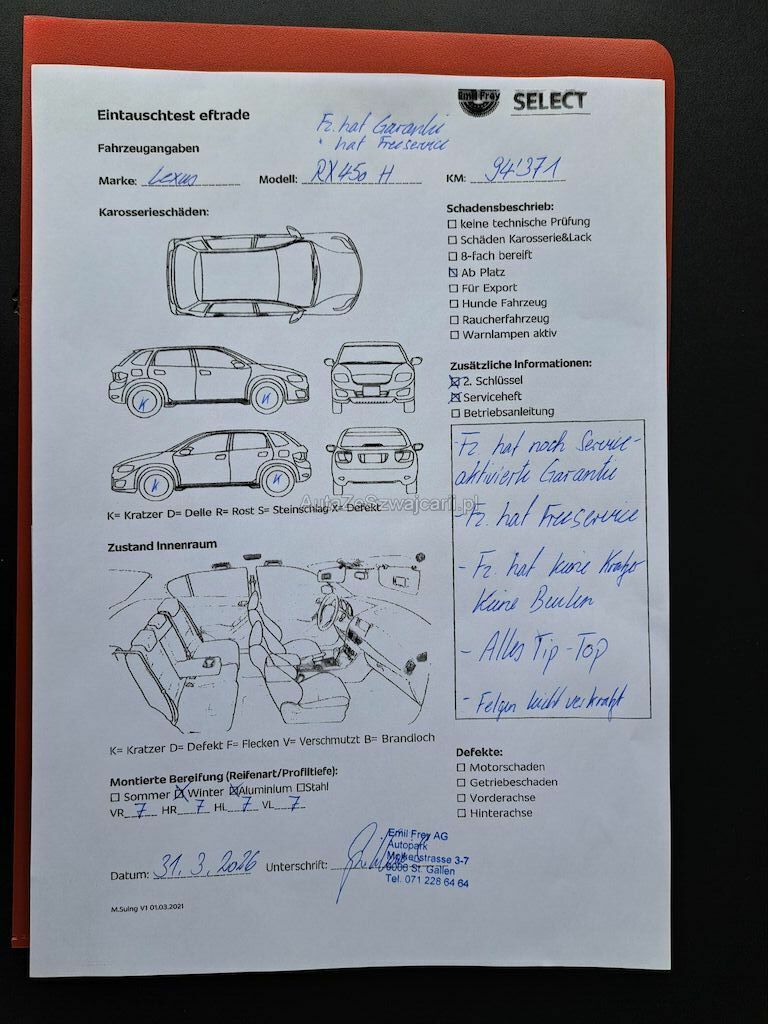 Emil Frey SELECT
Eintauschtest eftrade
Fz. hat Garantie
" hat Freeservice
Fahrzeugangaben
Marke: Lexus Modell: RX 450 H KM: 94'371
Karosserieschäden:
Schadensbeschrieb:
☐ keine technische Prüfung
☐ Schäden Karosserie&Lack
☐ 8-fach bereift
☒ Ab Platz
☐ Für Export
☐ Hunde Fahrzeug
☐ Raucherfahrzeug
☐ Warnlampen aktiv
Zusätzliche Informationen:
☒ 2. Schlüssel
☒ Serviceheft
☐ Betriebsanleitung
K K
K K
K= Kratzer D= Delle R= Rost S= Steinschlag X= Defekt
AutaZeSzwajcarii.pl
- Fz. hat noch Service-
aktivierte Garantie
- Fz. hat Freeservice
- Fz. hat keine Kratzer
keine Beulen
- Alles Tip-Top
- Felgen leicht verkratzt
Zustand Innenraum
K= Kratzer D= Defekt F= Flecken V= Verschmutzt B= Brandloch
Montierte Bereifung (Reifenart/Profiltiefe):
☐ Sommer ☒ Winter ☒ Aluminium ☐ Stahl
VR 7 HR 7 HL 7 VL 7
Defekte:
☐ Motorschaden
☐ Getriebeschaden
☐ Vorderachse
☐ Hinterachse
Datum: 31.3.2026 Unterschrift:
Emil Frey AG
Autopark
Molkenstrasse 3-7
9006 St. Gallen
Tel. 071 228 64 64
M.Suing V1 01.03.2021